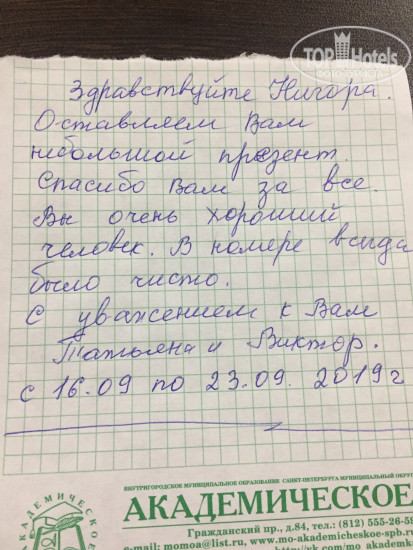 TOP Hotels
Здравствуйте Нигора.
Оставляем Вам
небольшой презент.
Спасибо Вам за все.
Вы очень хороший
человек. В номере всегда
было чисто.
С уважением к Вам
Татьяна и Виктор.
с 16.09 по 23.09. 2019г
ВНУТРИГОРОДСКОЕ МУНИЦИПАЛЬНОЕ ОБРАЗОВАНИЕ САНКТ-ПЕТЕРБУРГА МУНИЦИПАЛЬНЫЙ ОКРУГ
АКАДЕМИЧЕСКОЕ
Гражданский пр., д.84, тел.: (812) 555-26-59
e-mail: momoa@list.ru, www.mo-akademicheskoe-spb.r
АКАДЕМИЧЕСКОЕ